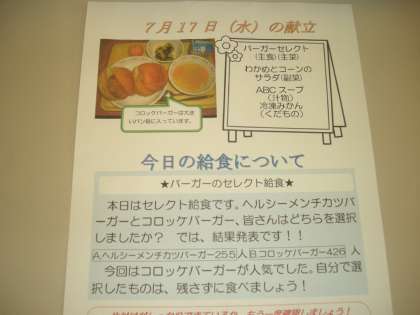 ７月１７日（水）の献立
バーガーセレクト
（主食）（主菜）
わかめとコーンの
サラダ（副菜）
ABCスープ
（汁物）
冷凍みかん
（くだもの）
コロッケバーガーは大き
いパン皿に入っています。
今日の給食について
★バーガーのセレクト給食★
本日はセレクト給食です。ヘルシーメンチカツバ
ーガーとコロッケバーガー、皆さんはどちらを選択
しましたか？　では、結果発表です！！
A.ヘルシーメンチカツバーガー255人 B.コロッケバーガー426 人
今回はコロッケバーガーが人気でした。自分で選
択したものは、残さずに食べましょう！
もう一度確認しましょう！